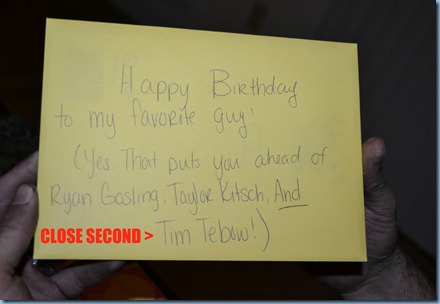 Happy Birthday
to my favorite guy!
(Yes. That puts you ahead of
Ryan Gosling, Taylor Kitsch, And
CLOSE SECOND > Tim Tebow!)